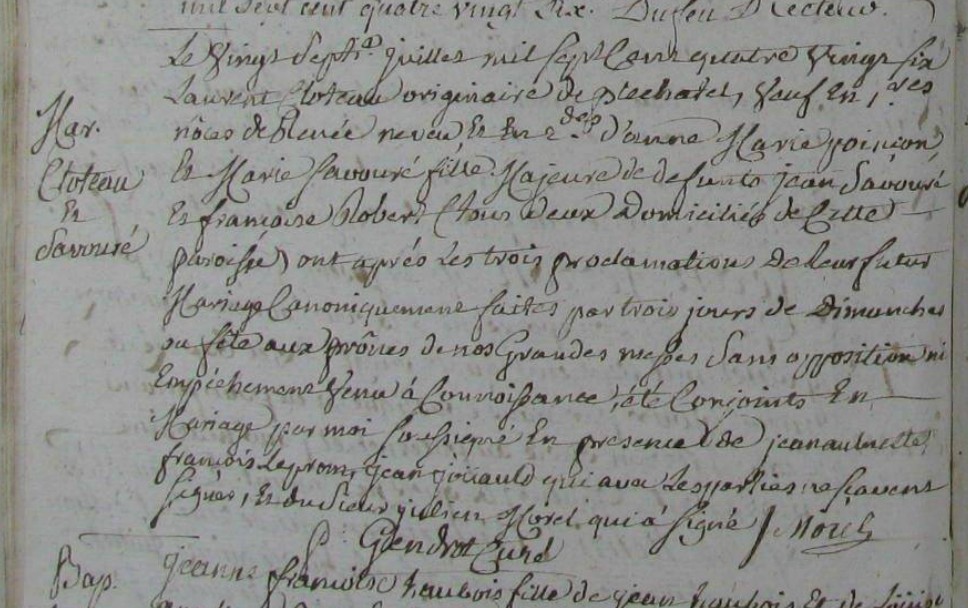 mil sept cent quatre vingt six. Dufeu Recteur.
Le vingt Septe. juillet mil sept Cent quatre vingt six
Laurent Cloteau originaire de plechatel, veuf En 1.res
nôces de Renée neveu Et En 2des d'anne Marie poinçon,
Et Marie Savouré fille Majeure de defunts jean Savouré
Et francoise Robert (tous deux Domiciliés de Cette
paroisse) ont aprés Les trois proclamations de Leur futur
Mariage Canoniquement faites par trois jours de Dimanches
ou fête aux prônes de nos Grandes messes Sans opposition ni
Empéchement Venu à Connoissance, été Conjoints En
Mariage par moi Soussigné En presence de jean
francois Leprom, jean joüauld qui avec Les parties ne scavent
signer, Et du Sieur julien Morel qui à signé J Morel
Gendrot Curé
Mar.
Cloteau
Et
Savouré
Bap. jeanne francoise haubois fille de jean haubois Et de